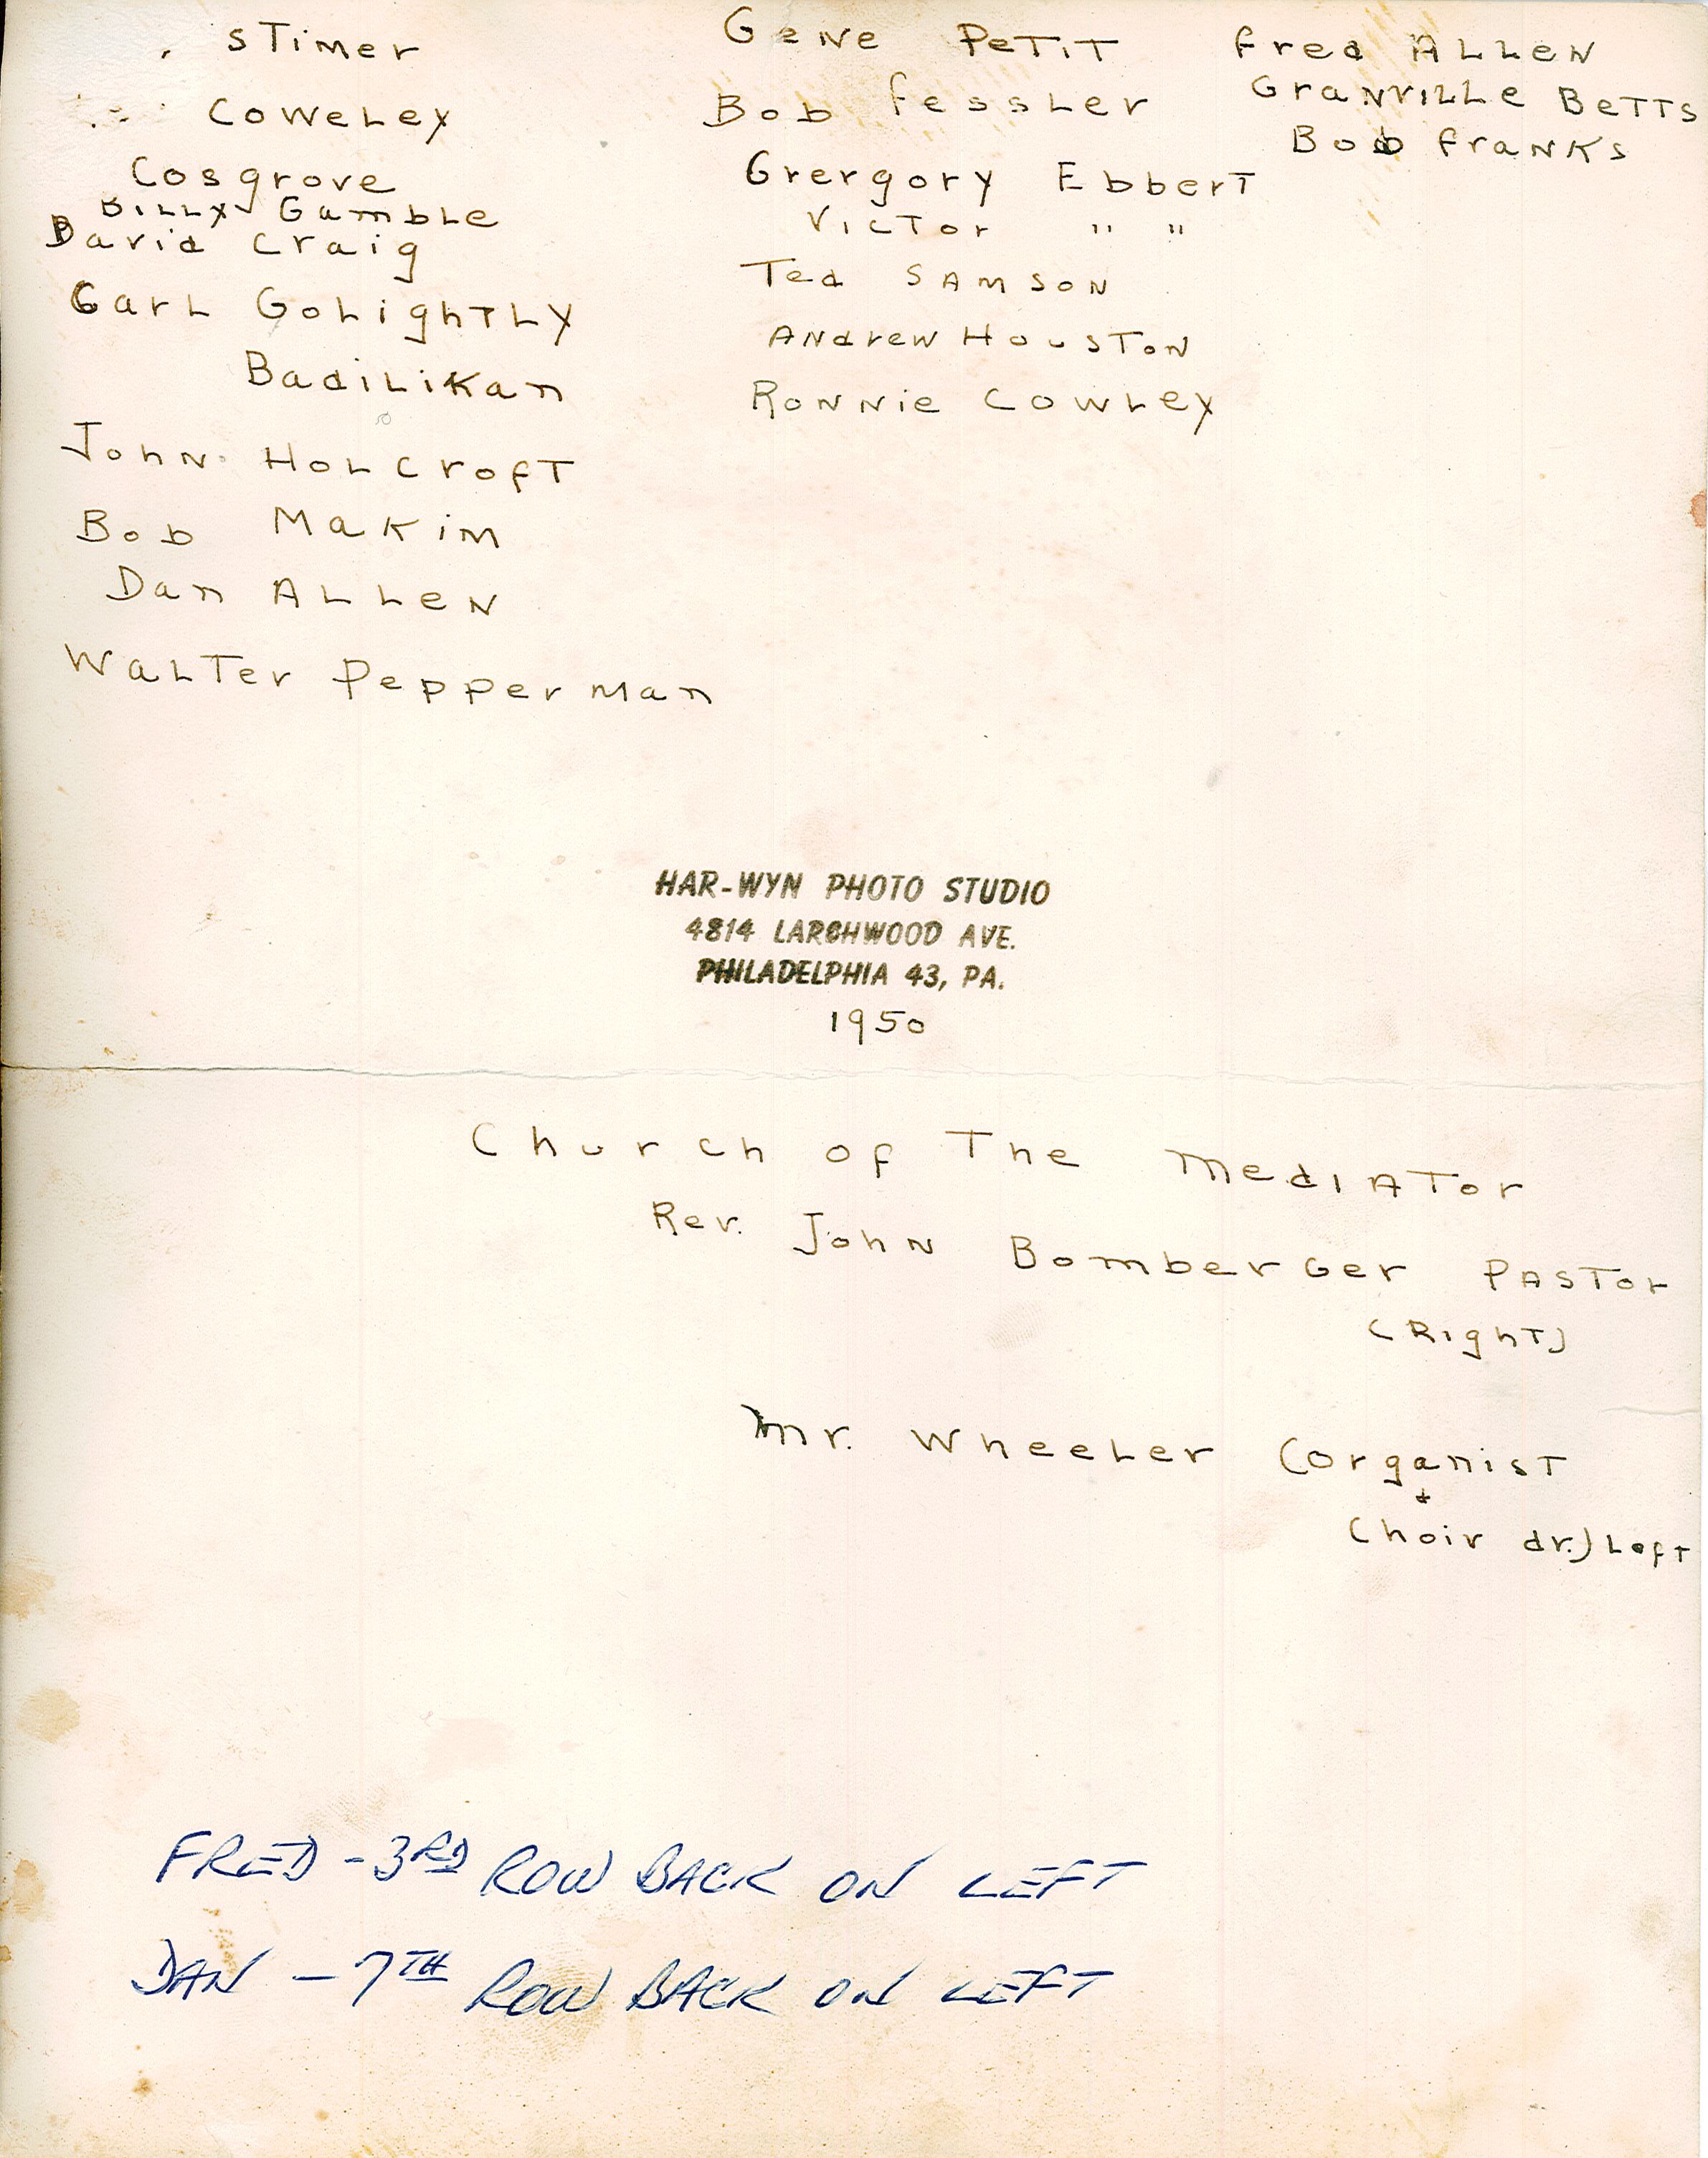 sTimer
CoweLey
Cosgrove
BiLLy GambLe
David Craig
GarL GoLighTLy
BadiLiKan
John HoLcrofT
Bob MaKim
Dan ALLeN
WaLTer Pepperman
GeNe PeTiT
Bob FessLer
Grergory EbberT
VicTor " "
Ted SAMSON
ANdrew HousToN
RoNNie CowLey
Fred ALLeN
GraNViLLe BeTTs
Bob FraNKs
HAR-WYN PHOTO STUDIO
4814 LARCHWOOD AVE.
PHILADELPHIA 43, PA.
1950
Church of The MediATor
Rev. John Bomberger PASTor
(RighT)
Mr. WheeLer (organisT
+
Choir dr.) LefT
FRED - 3RD ROW BACK ON LEFT
DAN - 7TH ROW BACK ON LEFT